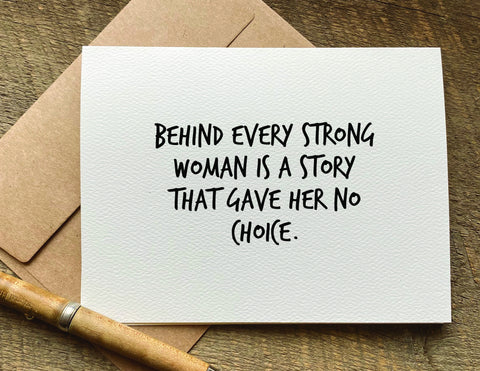 BEHIND EVERY STRONG
WOMAN IS A STORY
THAT GAVE HER NO
CHOICE.